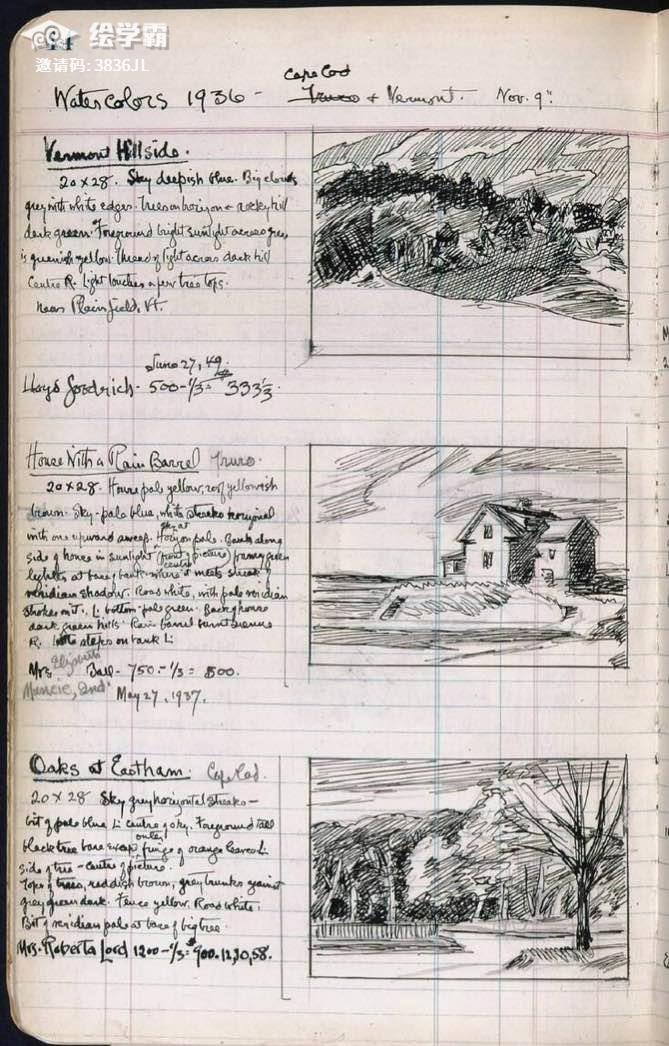 绘学霸
邀请码: 3836JL
Cape Cod
Water Colors 1936 - Truro + Vermont. Nov. 9th
Vermont Hillside.
20 x 28. Sky deepish blue. Big clouds
grey with white edges. Trees on horizon + rocky hill
dark green. Foreground bright sunlight across grey
is greenish yellow. Thread of light across dark hill
Centre R. Light touches a few tree tops.
near Plainfield, Vt.
June 27, 49.
Lloyd Goodrich - 500 - 1/3 = 333 1/3
House With a Rain Barrel Truro.
20 x 28. House pale yellow, roof yellowish
brown. Sky - pale blue, white streaks horizontal
with one upward sweep. Sky at Horizon pale. Bank along
side of house in sunlight (front centre of picture) green
lightest at base of bank where it meets streak
veridian shadow. Road white, with pale veridian
strokes on it. L. bottom pale green. Back of house
dark green hills. Rain barrel burnt sienna
R. little steps on bank L.
Elizabeth
Mrs Ball - 750. - 1/3 = 500.
Muncie, Ind. May 27, 1937.
Oaks at Eastham. Cape Cod.
20 x 28 Sky grey horizontal streaks -
bit of pale blue L. centre of sky. Foreground tall
black tree bare except outer fringe of orange leaves L.
side of tree - centre of picture.
Tops of trees, reddish brown, grey trunks against
grey green dark. Fence yellow. Road white.
Bit of veridian pale at base of big tree.
Mrs. Roberta Lord 1200 - 1/3 = $900. 12,30,58.